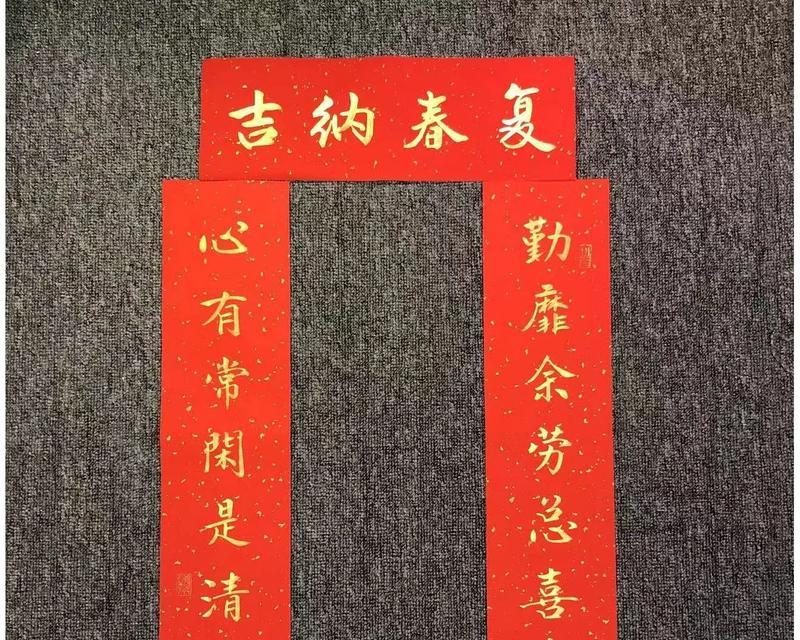 复春纳吉
勤靡余劳总喜
心有常閑是清